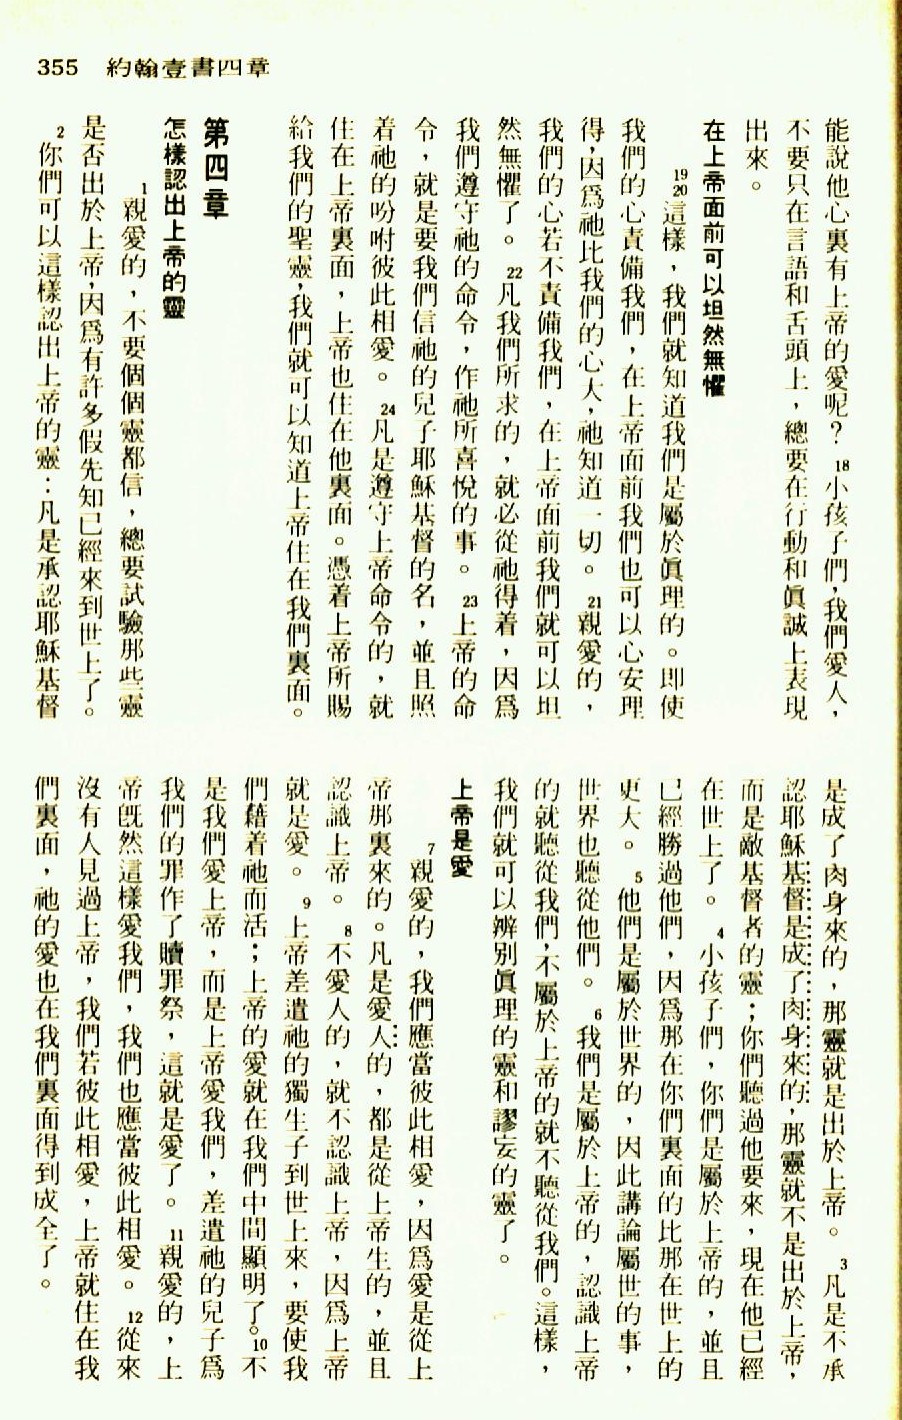 355 約翰壹書四章
能說他心裏有上帝的愛呢？ 18小孩子們，我們愛人，
不要只在言語和舌頭上，總要在行動和眞誠上表現
出來。
在上帝面前可以坦然無懼
19 20這樣，我們就知道我們是屬於眞理的。即使
我們的心責備我們，在上帝面前我們也可以心安理
得，因爲祂比我們的心大，祂知道一切。 21親愛的，
我們的心若不責備我們，在上帝面前我們就可以坦
然無懼了。 22凡我們所求的，就必從祂得着，因爲
我們遵守祂的命令，作祂所喜悅的事。 23上帝的命
令，就是要我們信祂的兒子耶穌基督的名，並且照
着祂的吩咐彼此相愛。 24凡是遵守上帝命令的，就
住在上帝裏面，上帝也住在他裏面。憑着上帝所賜
給我們的聖靈，我們就可以知道上帝住在我們裏面。
第四章
怎樣認出上帝的靈
1親愛的，不要個個靈都信，總要試驗那些靈
是否出於上帝，因爲有許多假先知已經來到世上了。
2你們可以這樣認出上帝的靈：凡是承認耶穌基督
是成了肉身來的，那靈就是出於上帝。 3凡是不承
認耶穌基督是成了肉身來的，那靈就不是出於上帝，
而是敵基督者的靈；你們聽過他要來，現在他已經
在世上了。 4小孩子們，你們是屬於上帝的，並且
已經勝過他們，因爲那在你們裏面的比那在世上的
更大。 5他們是屬於世界的，因此講論屬世的事，
世界也聽從他們。 6我們是屬於上帝的，認識上帝
的就聽從我們，不屬於上帝的就不聽從我們。這樣，
我們就可以辨别眞理的靈和謬妄的靈了。
上帝是愛
7親愛的，我們應當彼此相愛，因爲愛是從上
帝那裏來的。凡是愛人的，都是從上帝生的，並且
認識上帝。 8不愛人的，就不認識上帝，因爲上帝
就是愛。 9上帝差遣祂的獨生子到世上來，要使我
們藉着祂而活；上帝的愛就在我們中間顯明了。10不
是我們愛上帝，而是上帝愛我們，差遣祂的兒子爲
我們的罪作了贖罪祭，這就是愛了。 11親愛的，上
帝旣然這樣愛我們，我們也應當彼此相愛。 12從來
沒有人見過上帝，我們若彼此相愛，上帝就住在我
們裏面，祂的愛也在我們裏面得到成全了。